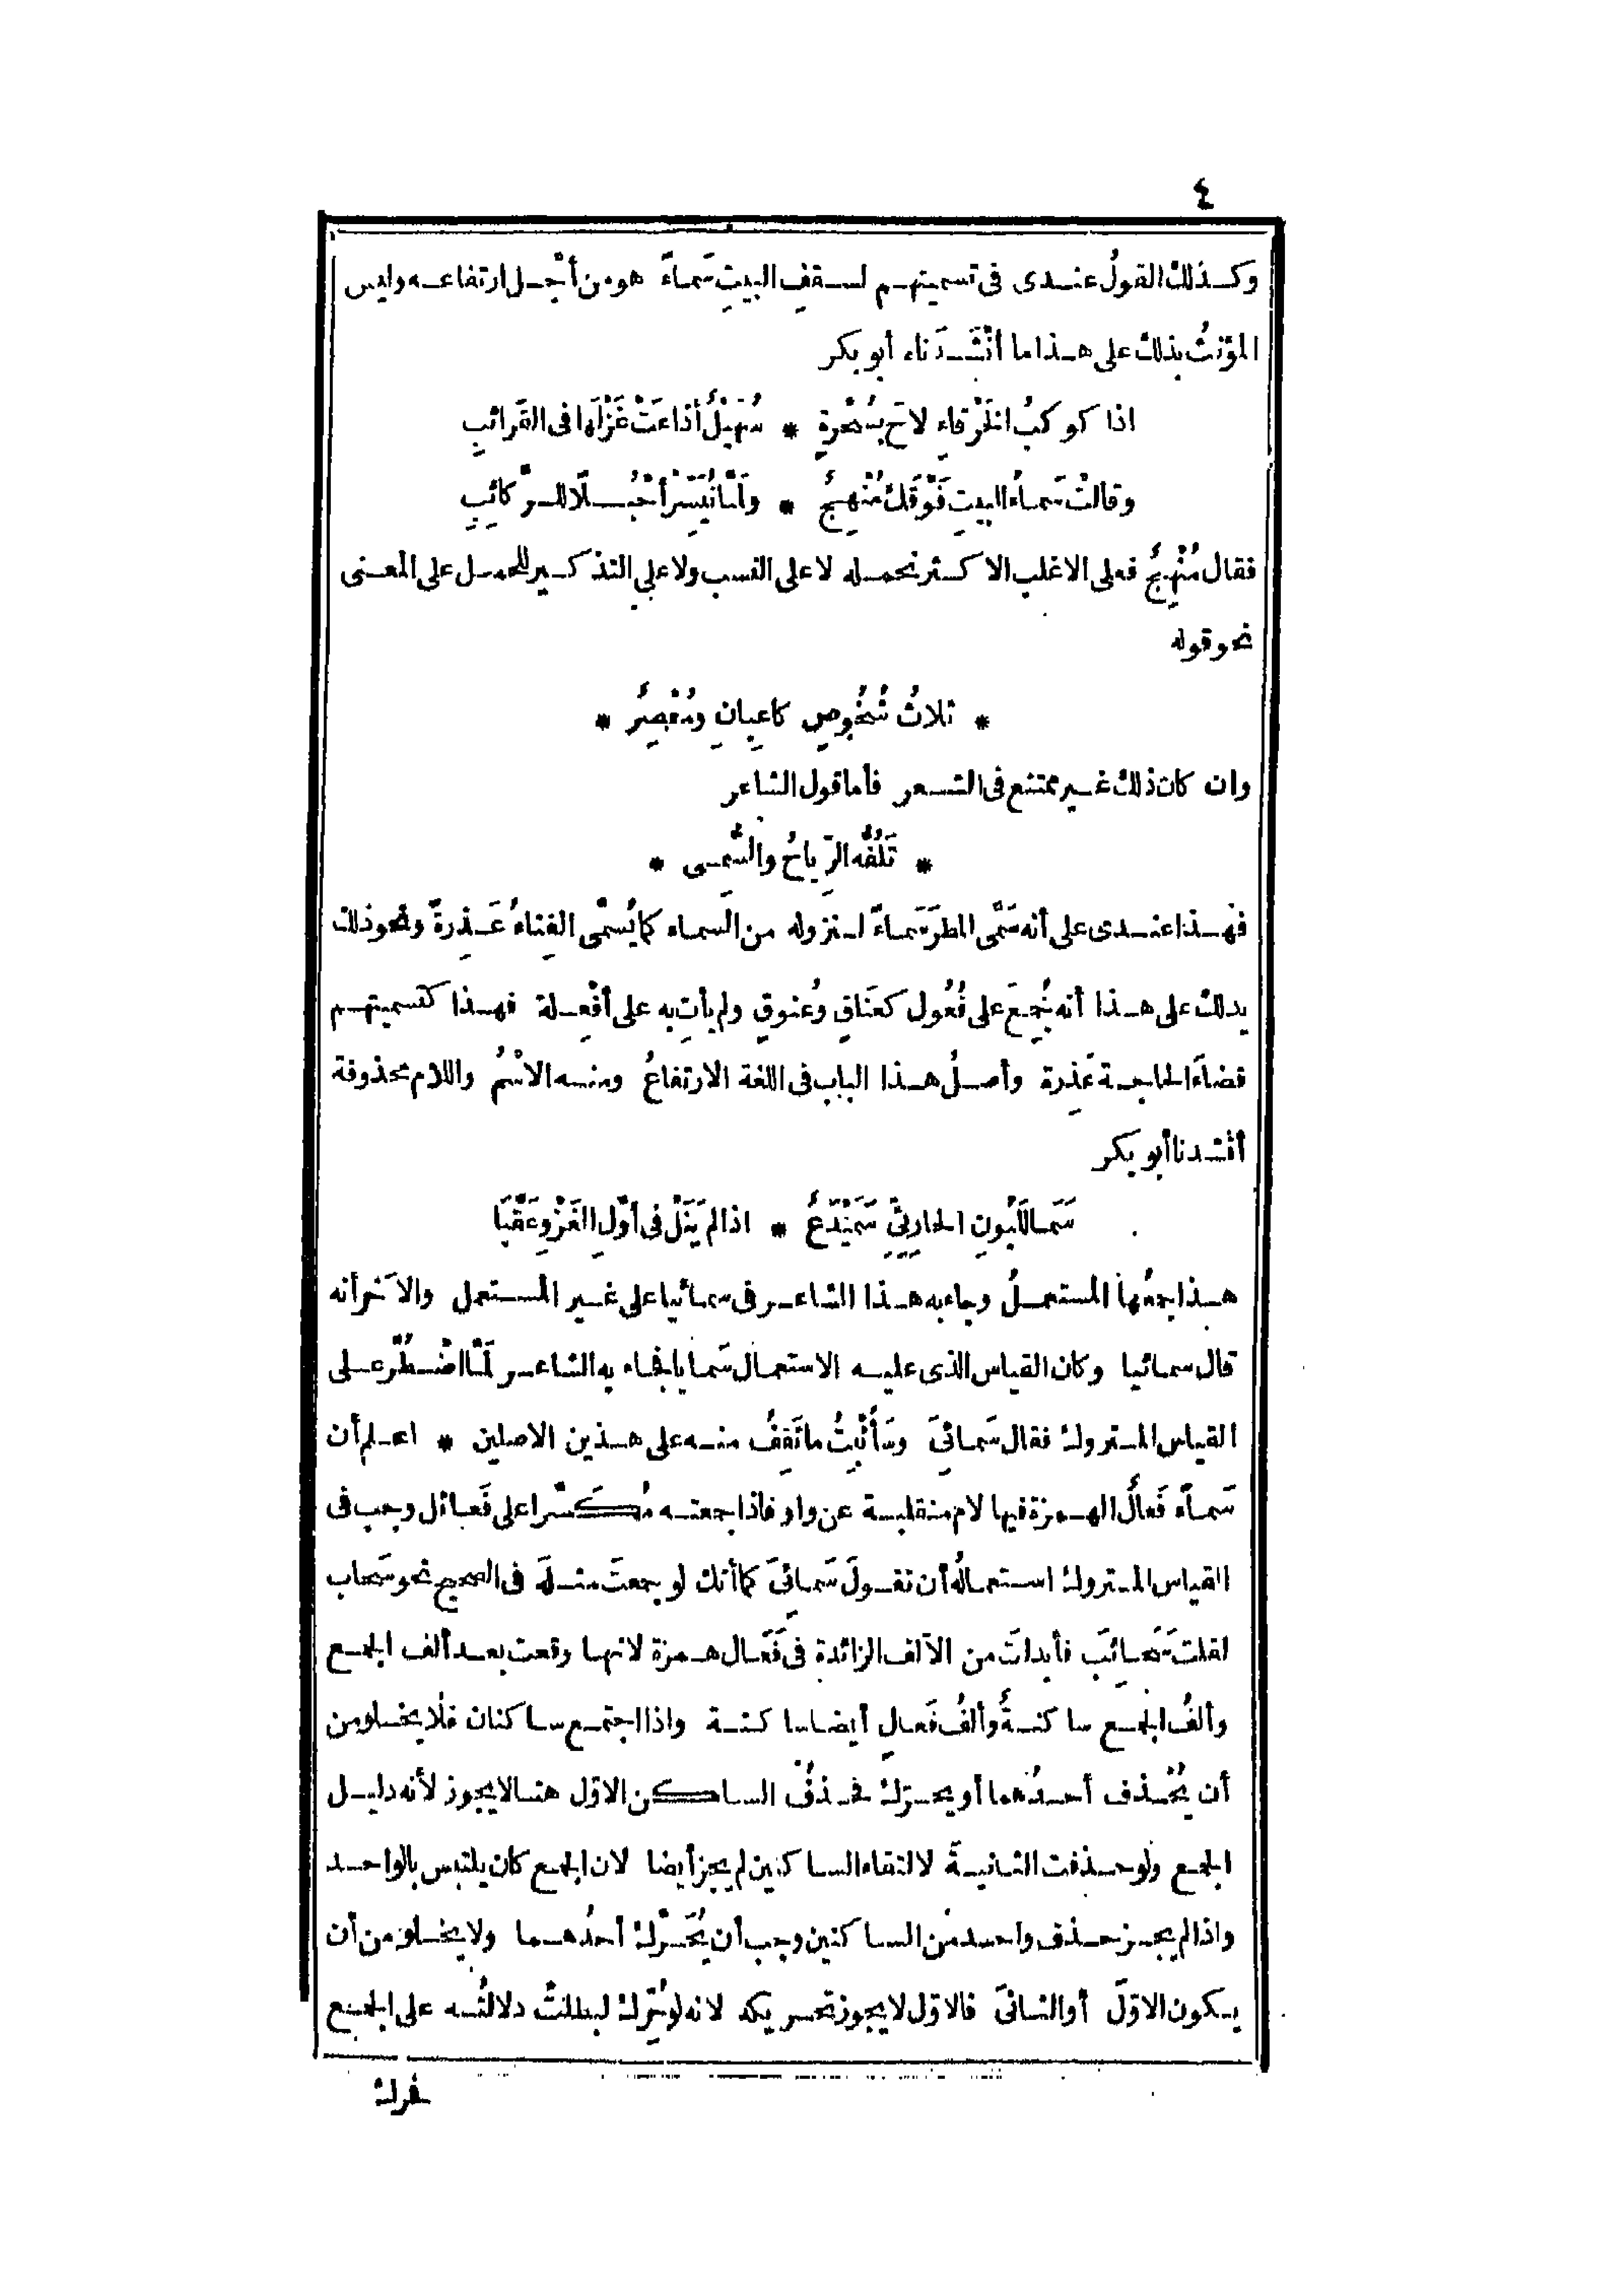 ٤
وكذلك القولُ عندى فى تسميتهم لسقفِ البيتِ سَماءً هو من أجْل ارتفاعه وليس
المؤنثُ بذلك على هذا ما أنْشَدَناه أبو بكر
اذا كوكبُ الخَرْقاءِ لاحَ بسُحْرةٍ * سُهَيْلٌ أذاعَتْ غَزْلَها فى القَرائبِ
وقالتْ سَماءُ البيتِ فَوْقَكَ مُنْهِجٌ * ولَمّا تُيَسِّرْ أحْبُلًا للرّكائِبِ
فقال مُنْهِجٌ فعلى الاغلب الاكثر نحمله لا على النسب ولا على التذكير للحمل على المعنى
نحو قوله
* ثلاثُ شُخُوصٍ كاعِبانِ ومُعْصِرُ *
وان كان ذلك غير ممتنع فى الشعر فأما قول الشاعر
* تَلُفُّه الرِّياحُ والسُّمِى *
فهذا عندى على أنه سَمَّى المطرَ سَماءً لنزوله من السماء كما يُسمَّى الفِناءُ عَذِرةً ونحو ذلك
يدلك على هذا أنه جُمِعَ على فُعُول كعَناقٍ وعُنوقٍ ولم يأتِ به على أفْعِلة فهذا كتسميتهم
قضاءَ الحاجة عَذِرة وأصلُ هذا الباب فى اللغة الارتفاعُ ومنه الاسْمُ واللام محذوفة
أنشدنا أبو بكر
سَمَا لِلَّبُونِ الحارِثِىّ سَمَيْدَعٌ * اذا لم يَنَلْ فى أوّلِ الغَزْوِ عَقَّبَا
هذا جمعُها المستعملُ وجاء به هذا الشاعر فى سمائيا على غير المستعمل والآخر أنه
قال سمائيا وكان القياس الذى عليه الاستعمال سَمايا فجاء به الشاعر لَمّا اضْطُرّ على
القياس المتروك فقال سَمائىَ وسَأُثْبِتُ ما ثَقِفُ منه على هذين الاصلين * اعلم أن
سَماءً فَعالٌ الهمزة فيها لام منقلبة عن واو فاذا جمعته مُكَسّرا على فَعائل وجب فى
القياس المتروك استعمالُه أن تقولَ سَمائِىَ كما أنك لو جمعتَ مثلَه فى الصحيح نحو سَحاب
لقلتَ سَحائِبَ فأبدلتَ من الالف الزائدة فى فَعَال همزة لانها وقعت بعد ألف الجمع
وألفُ الجمع ساكنةٌ وألفُ فَعالٍ أيضا ساكنة واذا اجتمع ساكنان فلا يخلو من
أن يُحْذف أحدُهما أو يحرّك فحذفُ الساكن الاوّل هنا لا يجوز لأنه دليل
الجمع ولو حذفت الثانيةَ لالتقاء الساكنين لم يجز أيضا لان الجمع كان يلتبس بالواحد
واذا لم يجز حذف واحد من الساكنين وجب أن يُحَرّك أحدُهما ولا يخلو من أن
يكون الاوّلَ أو الثانىَ فالاوّل لا يجوز تحريكه لانه لو حُرّك لبطلتْ دلالتُه على الجمع
فحرك